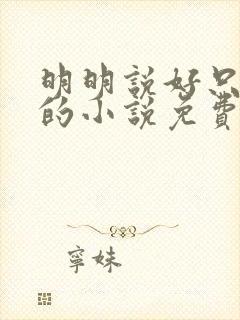 明明說好只
的小說免費
寧妹